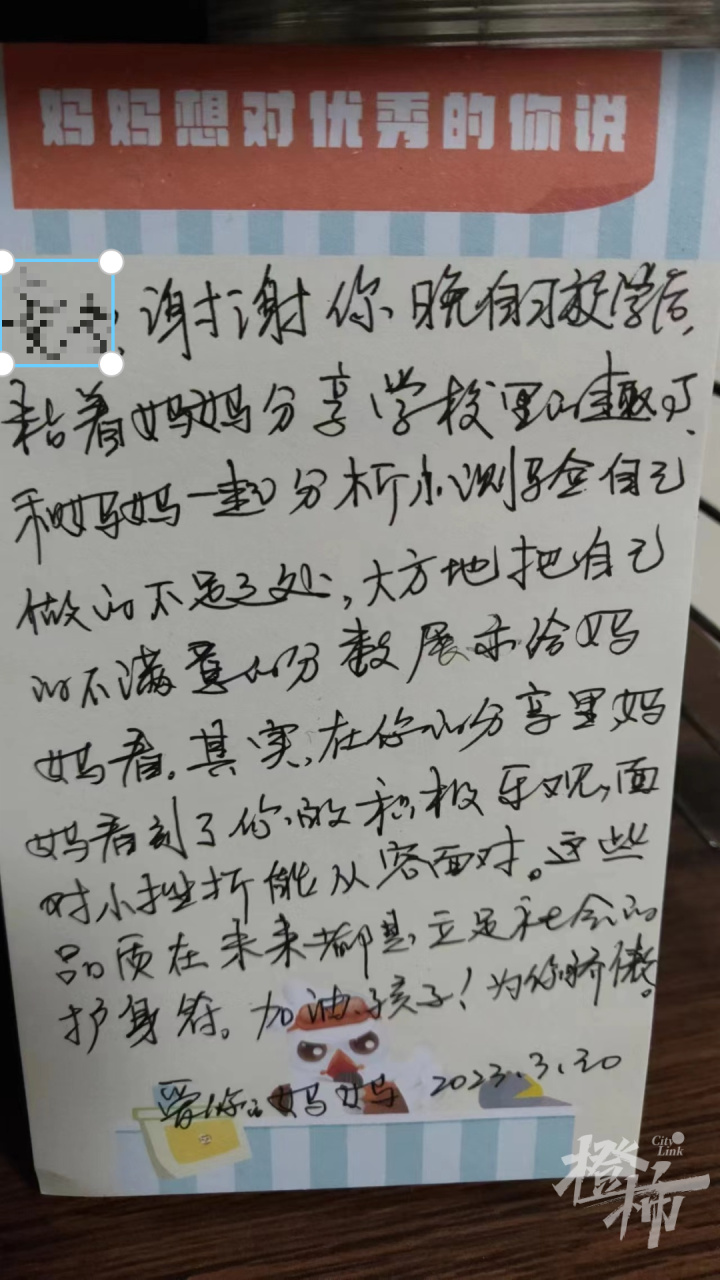 妈妈想对优秀的你说
谢谢你晚自习放学后,
粘着妈妈分享学校里的趣事,
和妈妈一起分析小测验金自己
做的不足之处,大方地把自己
的不满意的分数展示给妈
妈看。其实,在你的分享里,妈
妈看到了你的积极乐观,面
对小挫折能从容面对。这些
品质在未来都是立足社会的
护身符。加油,孩子!为你骄傲。
爱你的妈妈 2023.3.20
City Link
橙柿